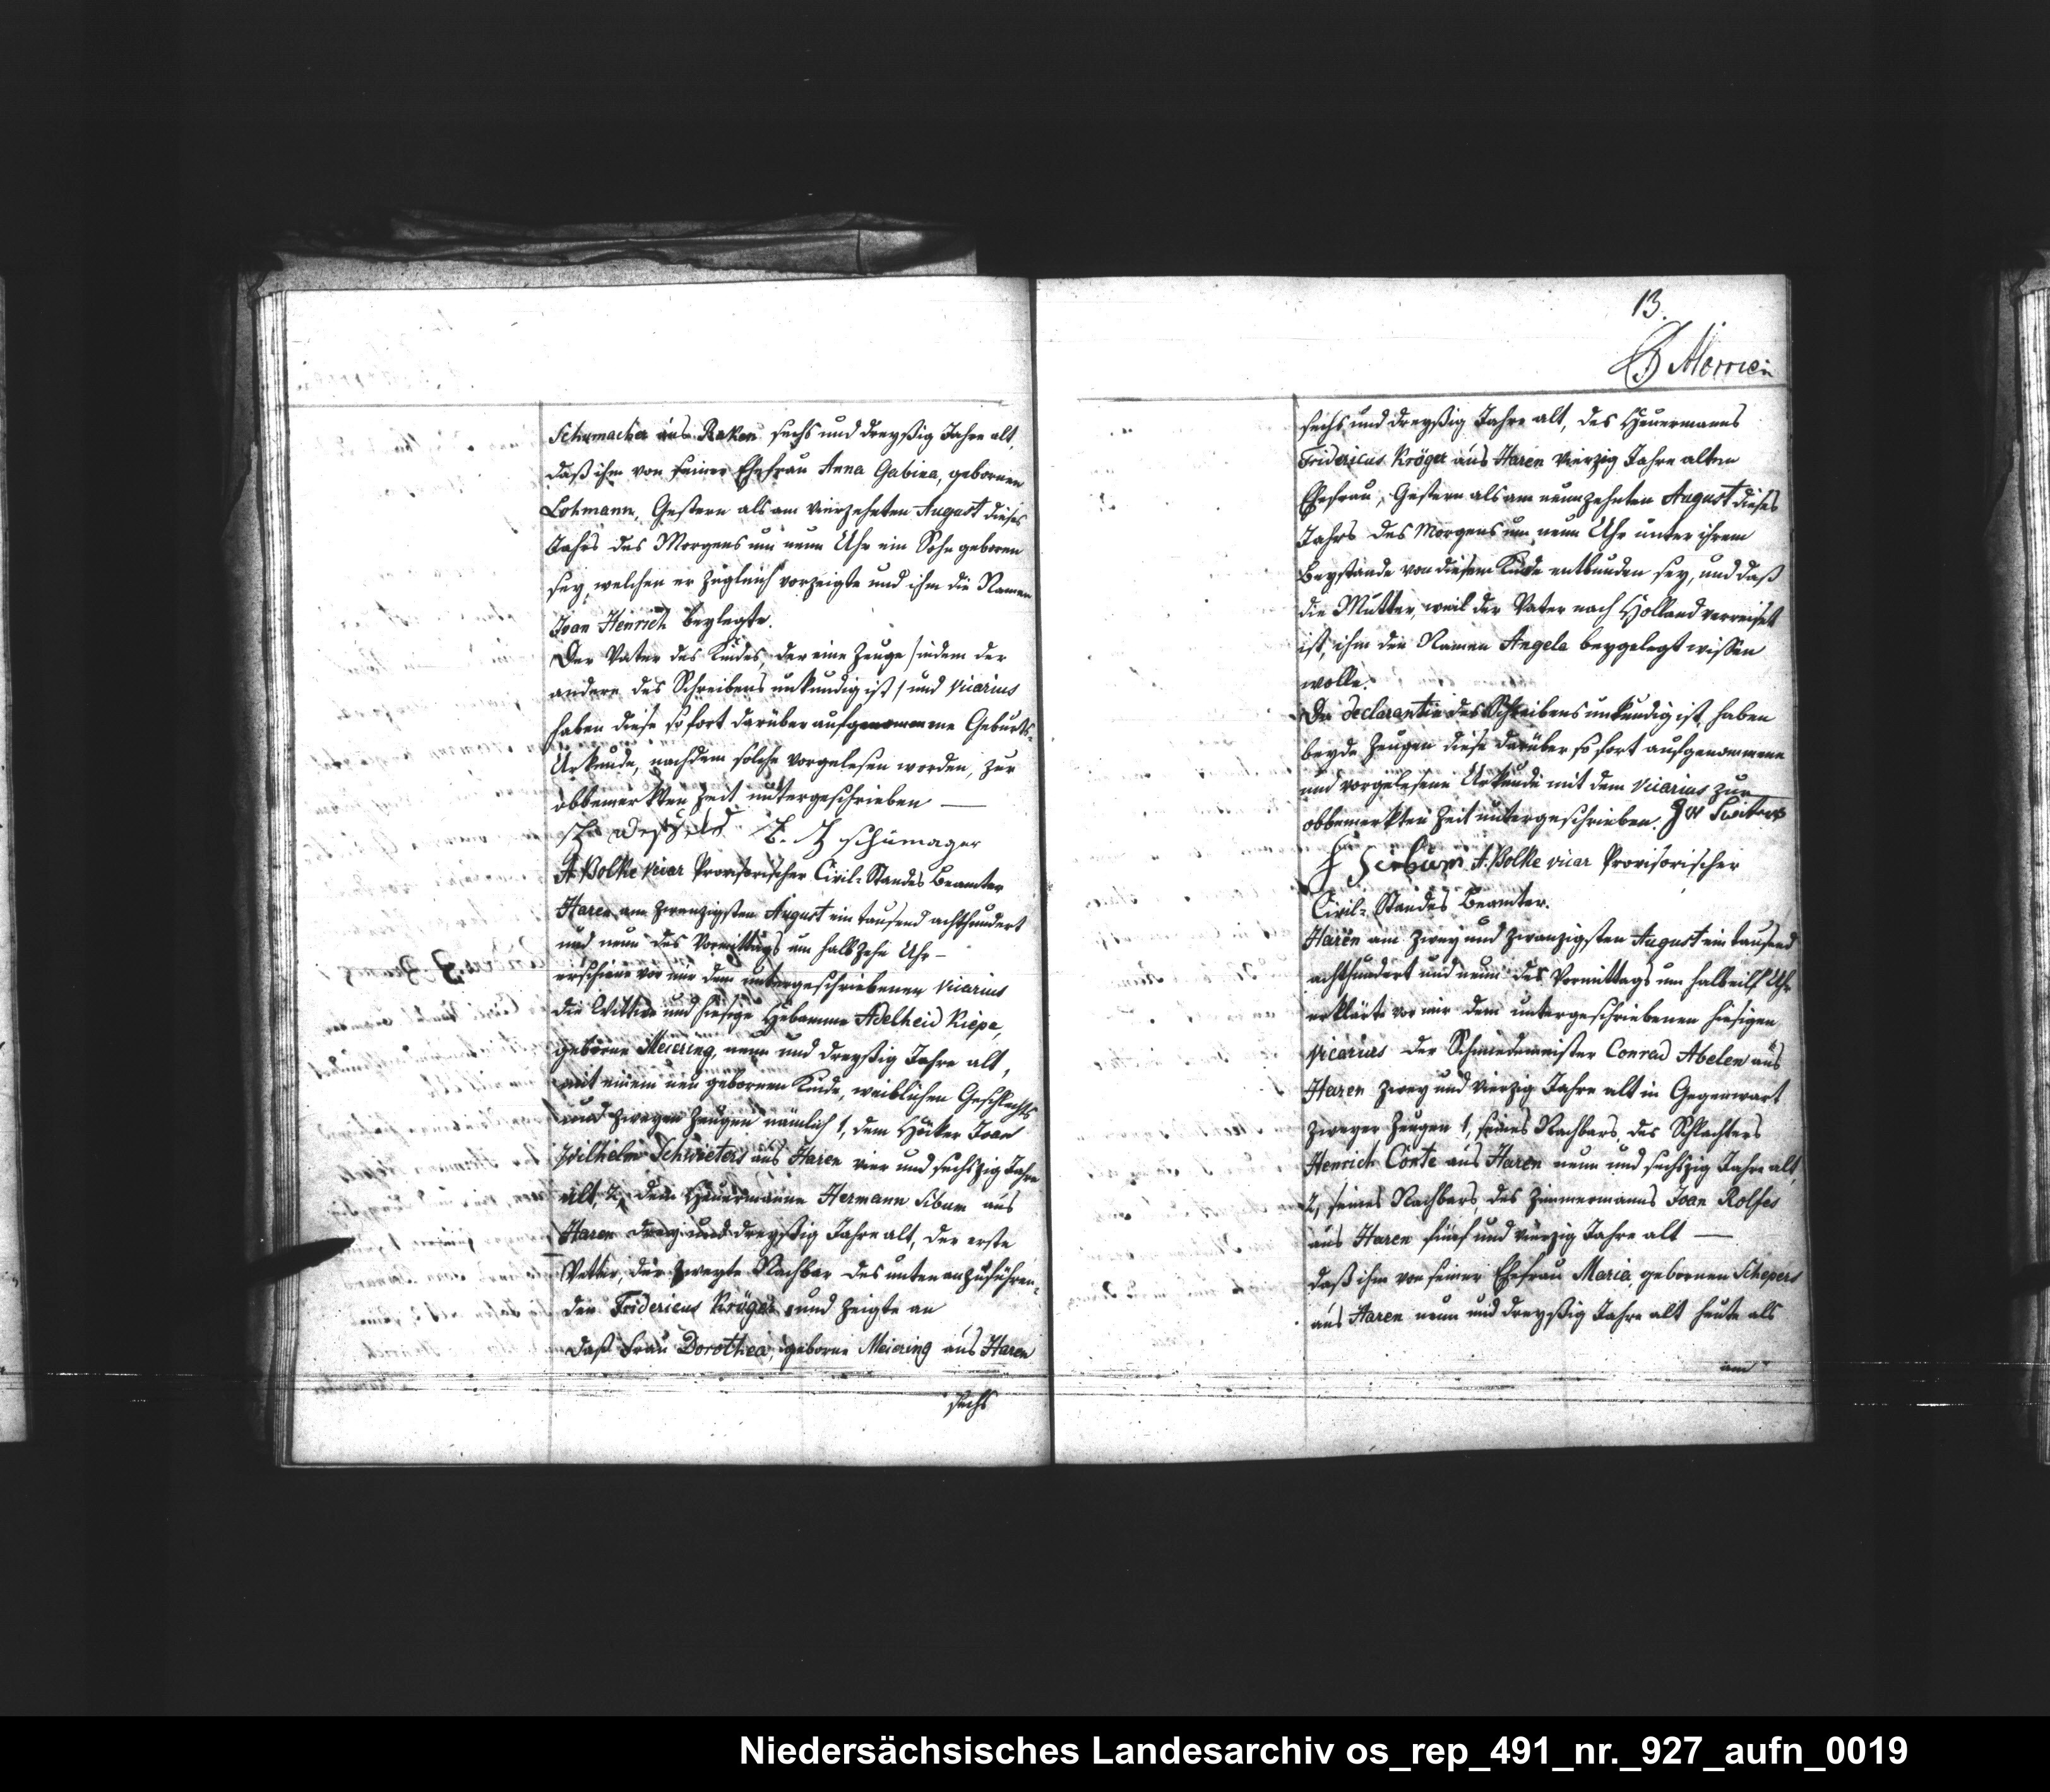 Schumacher aus Raken sechs und dreyßig Jahre alt,
daß ihm von seiner Ehefrau Anna Gabina, gebornen
Lohmann, Gestern als am vierzehnten August dieses
Jahrs des Morgens um neun Uhr ein Sohn geboren
sey, welchen er zugleich vorzeigte und ihm die Namen
Joan Henrich beylegte.
Der Vater des Kindes, der eine Zeuge /indem der
andere des Schreibens unkundig ist/ und Vicarius
haben diese sofort darüber aufgenommene Geburts-
Urkunde, nachdem solche vorgelesen worden, zur
obbemerkten Zeit untergeschrieben —
H schümager
A. Bolke Vicar Provisorischer Civil-Standes Beamter
Haren am zwanzigsten August ein tausend achthundert
und neun des Vormittags um halb zehn Uhr –
erschiene vor mir dem untergeschriebenen Vicarius
die Wittwe und hiesige Hebamme Adelheid Kiepe,
geborne Meiering, neun und dreyßig Jahre alt,
mit einem neu gebornen Kinde, weiblichen Geschlechts
und zweyen Zeugen nämlich 1, dem Höcker Joan
Wilhelm Schwieters aus Haren vier und sechszig Jahre
alt, 2, dem Heuermanne Hermann Sibum aus
Haren drey und dreyßig Jahre alt, der erste
Vetter, der zweyte Nachbar des unten anzuführen-
den Fridericus Kröger und zeigte an
daß Frau Dorothea, geborne Meiering aus Haren
sechs
13.
Morrien
sechs und dreyßig Jahre alt, des Heuermanns
Fridericus Kröger aus Haren vierzig Jahre alten
Ehefrau, Gestern als am neunzehnten August dieses
Jahrs des Morgens um neun Uhr unter ihrem
Beystande von diesem Kinde entbunden sey, und daß
die Mutter, weil der Vater nach Holland verreiset
ist, ihm den Namen Angela beygelegt wissen
wolle.
Da Declarantin des Schreibens unkundig ist, haben
beyde Zeugen diese darüber sofort aufgenommene
und vorgelesene Urkunde mit dem Vicarius zur
obbemerkten Zeit untergeschrieben. J W Switers
Siebum A. Bolke Vicar Provisorischer
Civil-Standes Beamter.
Haren am zwey und zwanzigsten August ein tausend
achthundert und neun des Vormittags um halb eilf Uhr
erklärte vor mir dem untergeschriebenen hiesigen
Vicarius der Schmiedemeister Conrad Abelen aus
Haren zwey und vierzig Jahre alt in Gegenwart
zweyer Zeugen 1, seines Nachbars, des Schlachters
Henrich Conte aus Haren neun und sechszig Jahre alt,
2, seines Nachbars, des Zimmermanns Joan Rolfes
aus Haren fünf und vierzig Jahre alt —
daß ihm von seiner Ehefrau Maria, gebornen Schepers
aus Haren neun und dreyßig Jahre alt heute als
am
Niedersächsisches Landesarchiv os_rep_491_nr._927_aufn_0019